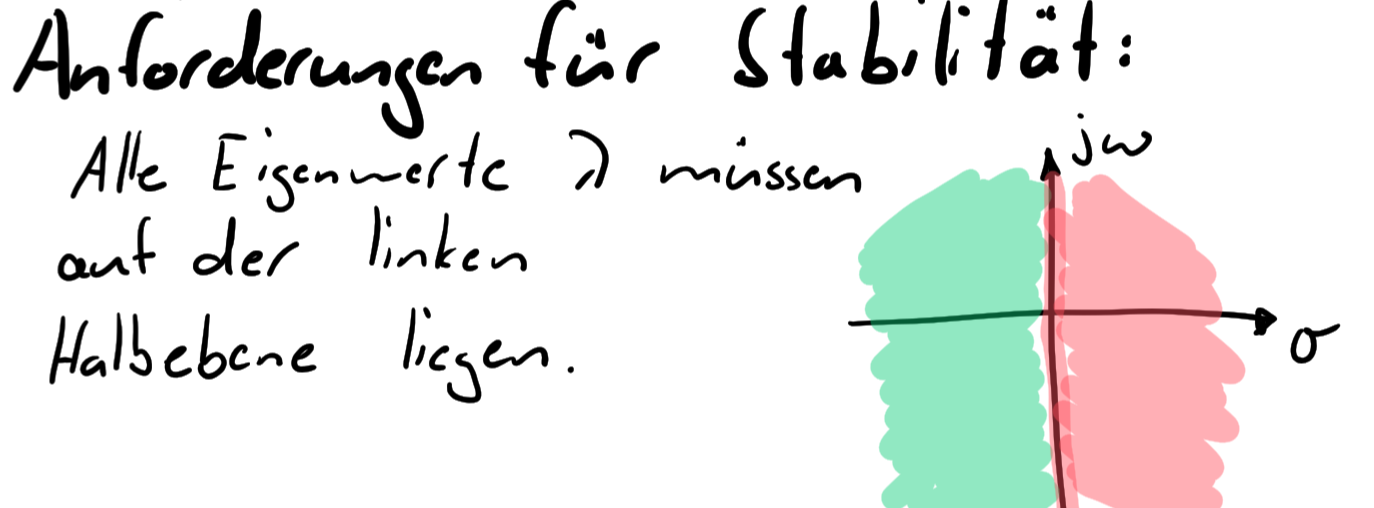 Anforderungen für Stabilität:
Alle Eigenwerte λ müssen
auf der linken
Halbebene liegen.
jω
σ